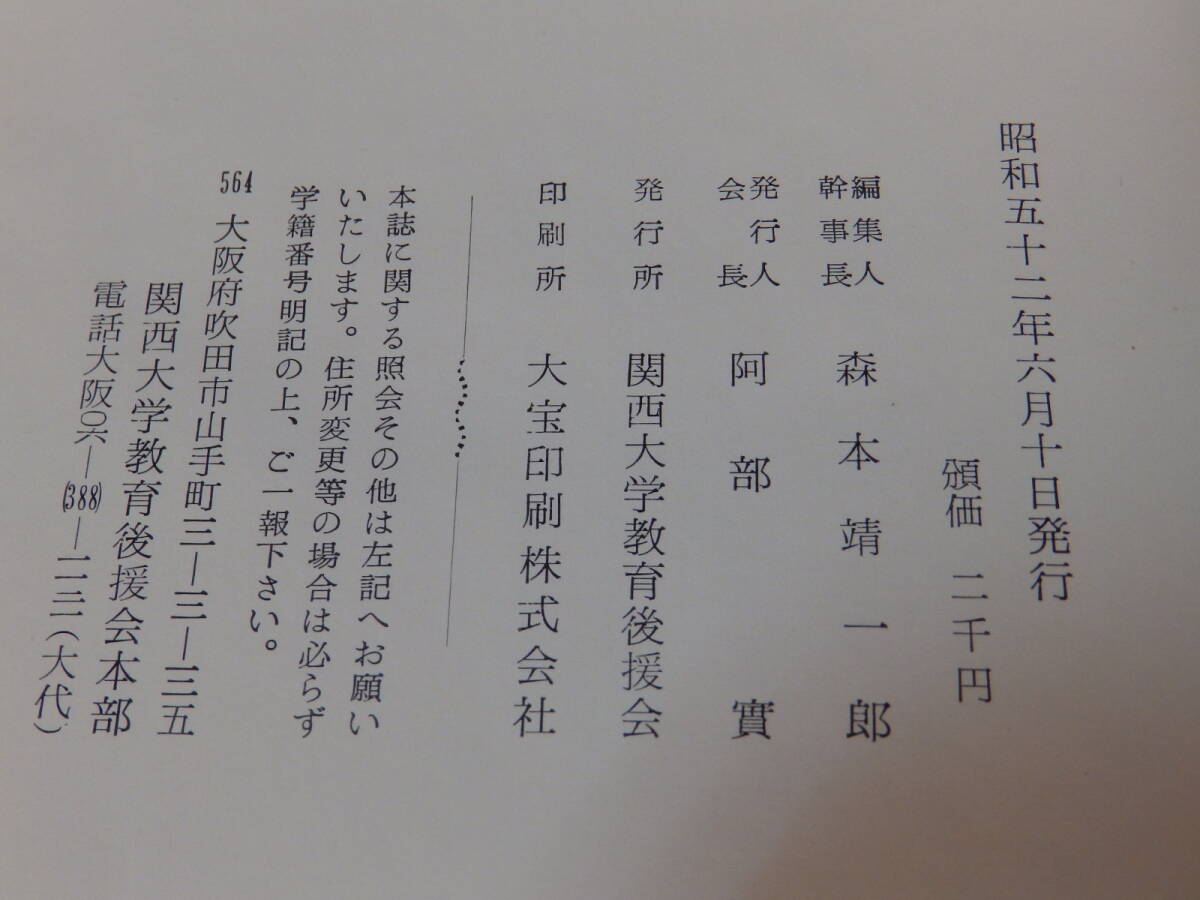 昭和五十二年六月十日発行
頒価 二千円
編集人
幹事長 森本靖一郎
発行人
会長 阿部實
発行所 関西大学教育後援会
印刷所 大宝印刷株式会社
本誌に関する照会その他は左記へお願い
いたします。住所変更等の場合は必らず
学籍番号明記の上、ご一報下さい。
564 大阪府吹田市山手町三―三―三五
関西大学教育後援会本部
電話大阪〇六―(388)―一一二一(大代)